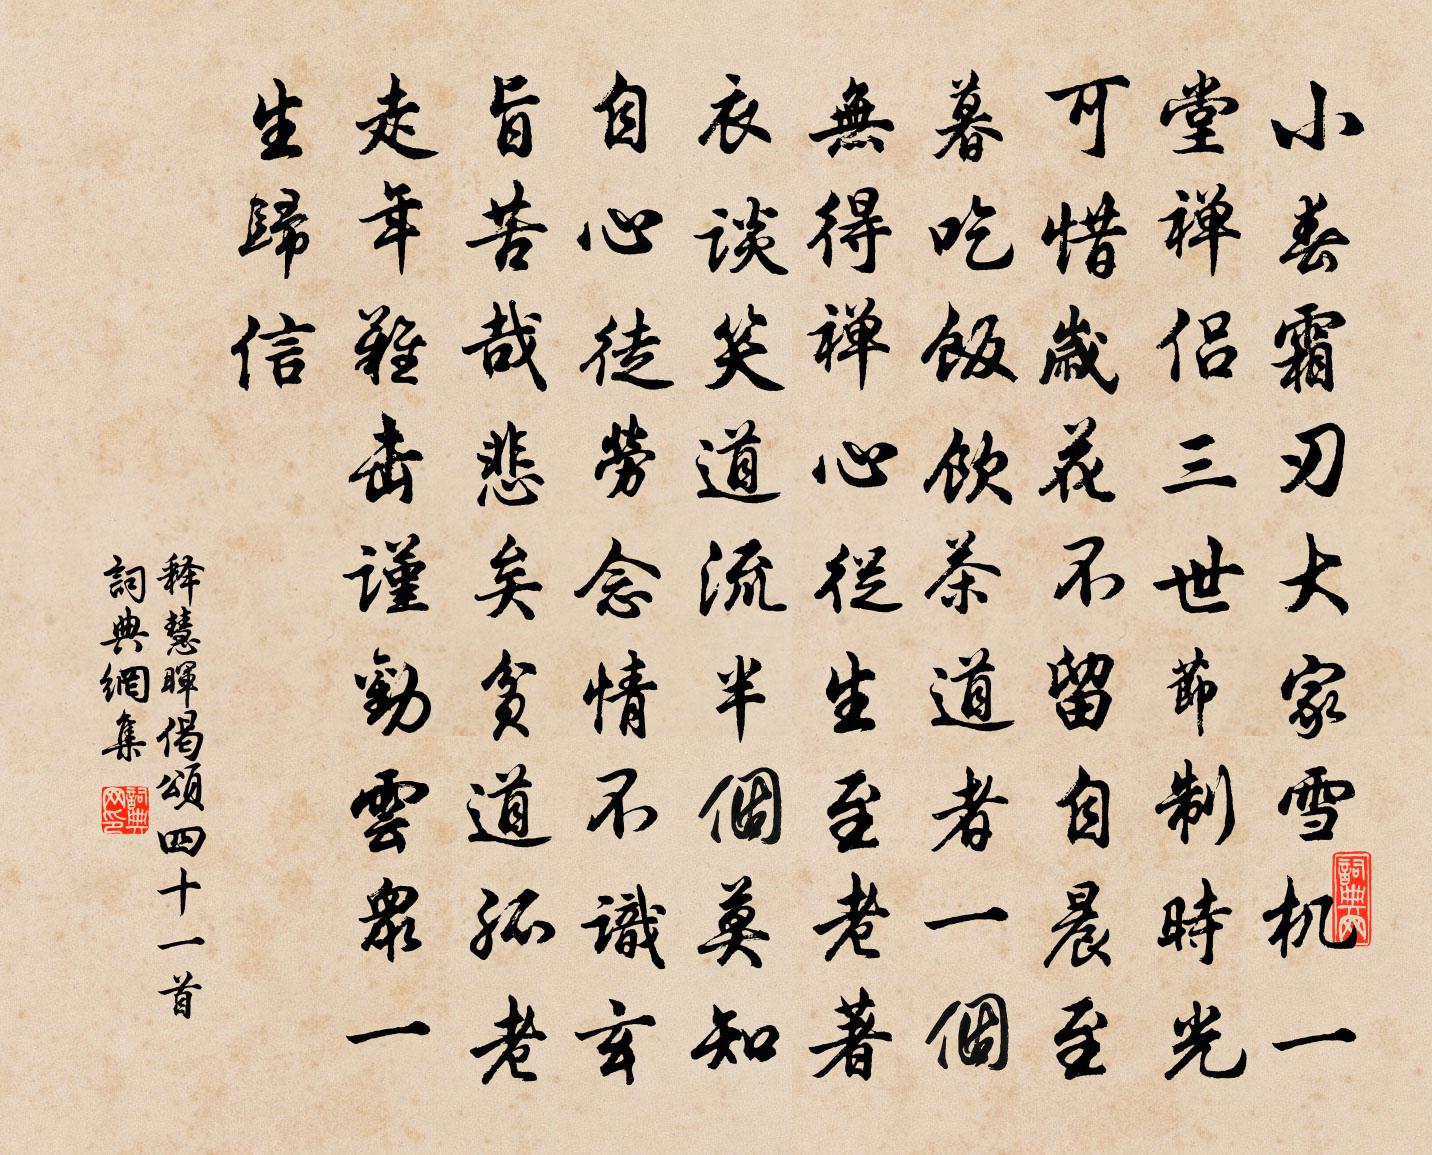 小春霜刃大家雪机一
堂禅侣三世節制時光
可惜歲花不留自晨至
暮吃飯飲茶道者一個
無得禅心從生至老著
衣談笑道流半個莫知
自心徒勞念情不識玄
旨苦哉悲矣貧道孤老
走年難出謹勸雲眾一
生歸信
释慧暉偈頌四十一首
詞典網集
詞典网
詞典网印